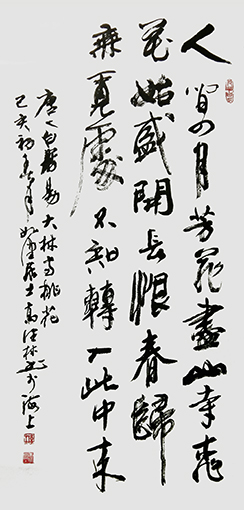 人间四月芳菲盡山寺桃
花始盛開長恨春歸
無覓處不知轉入此中来
唐人白居易大林寺桃花
己亥初春年
士高
林書於海上